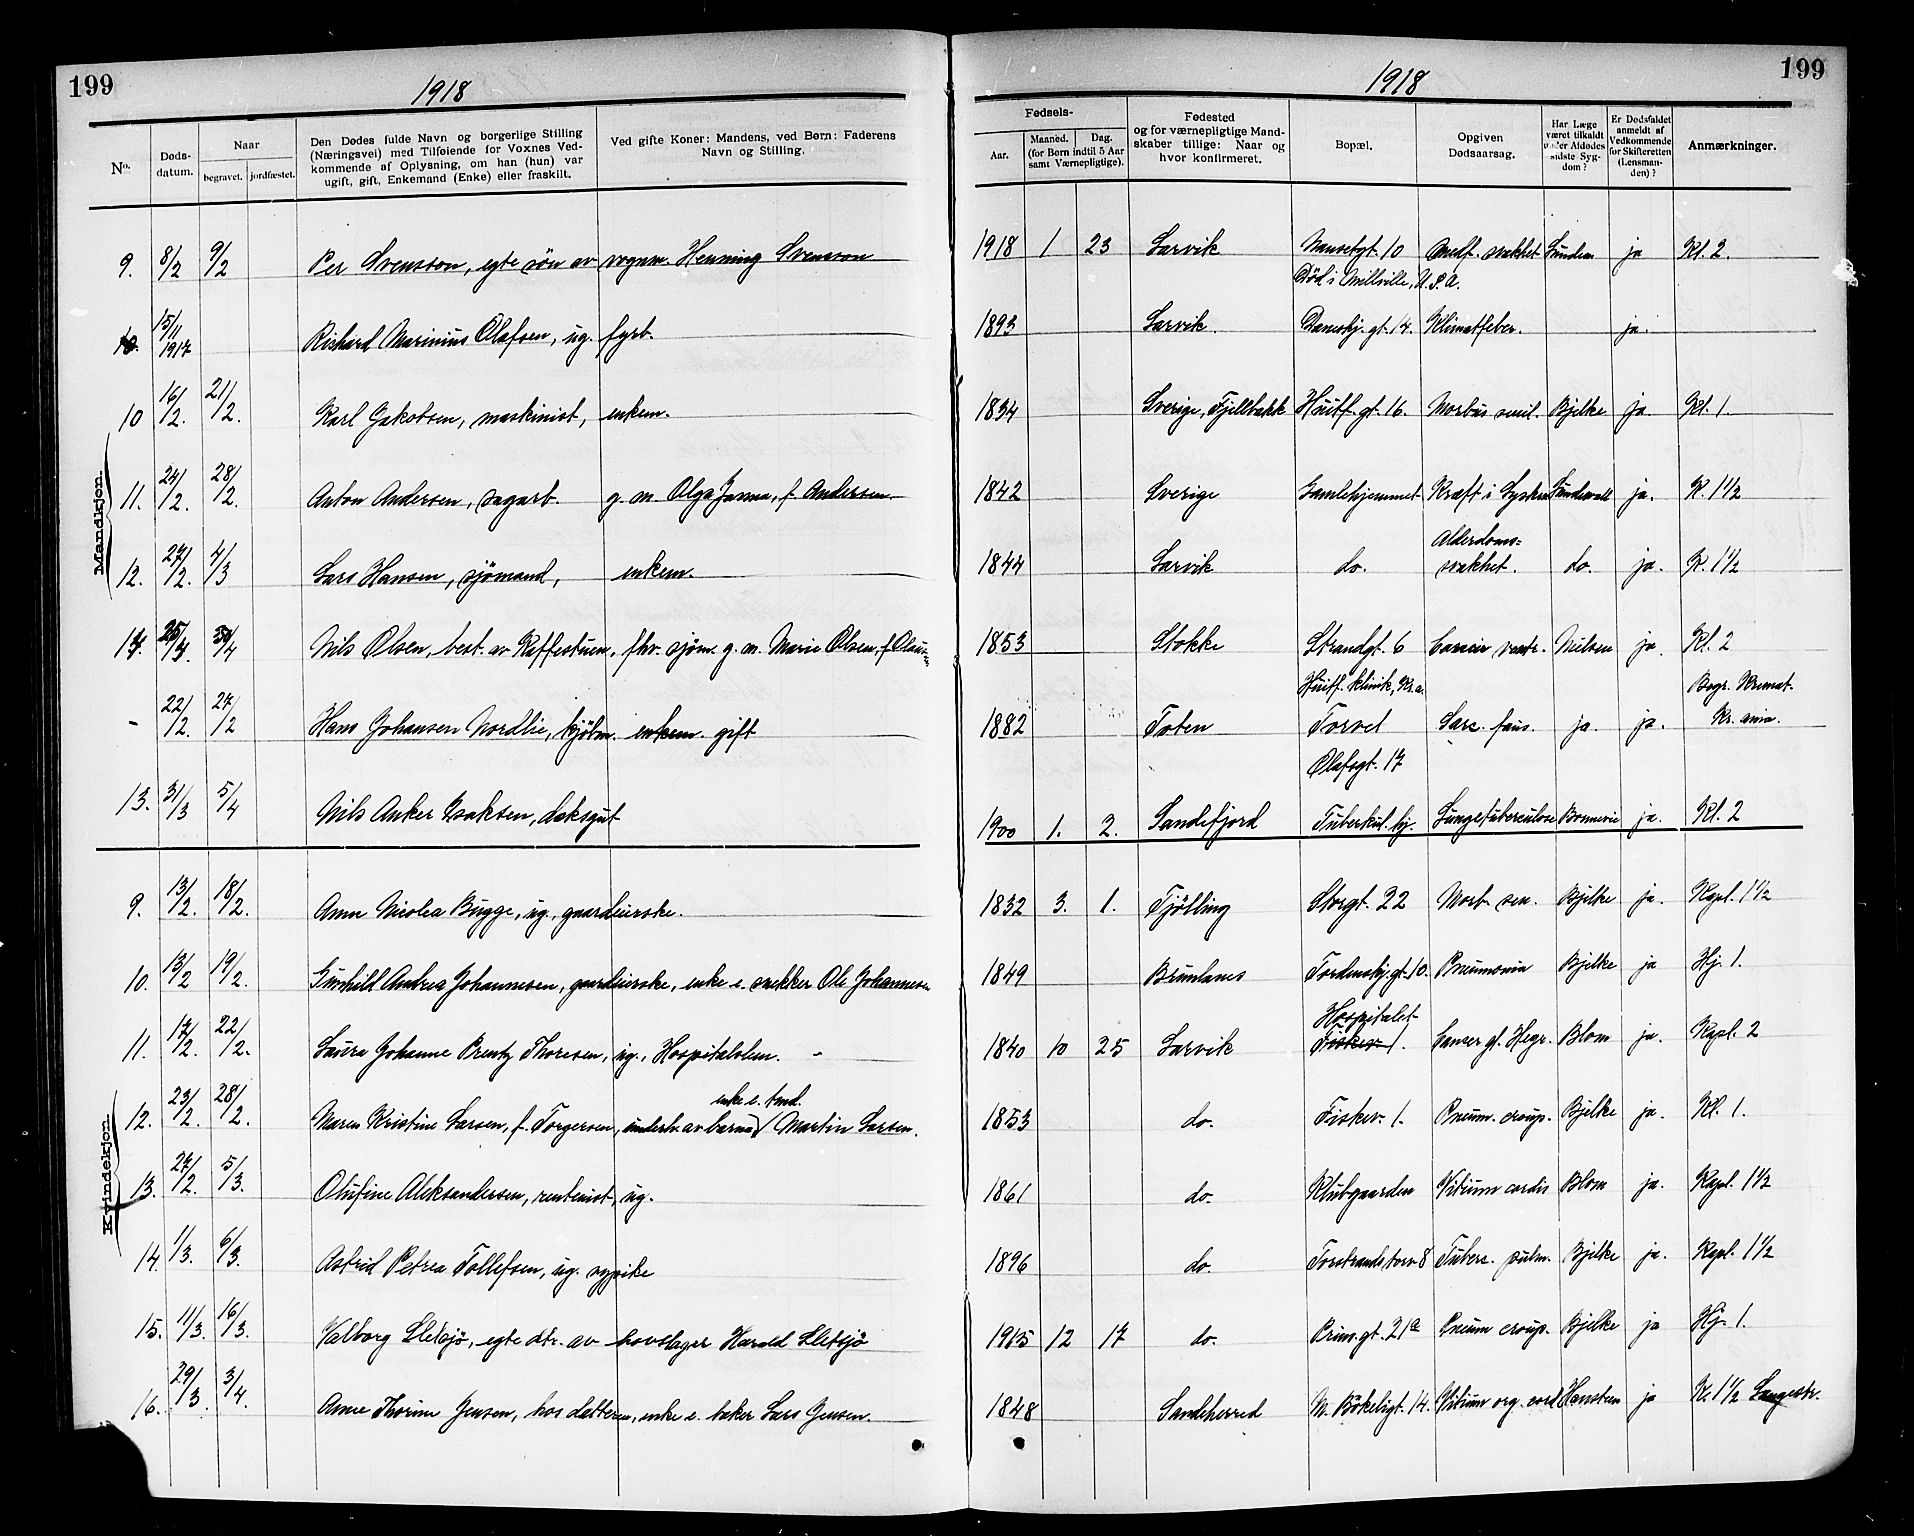 199
1918
No.
Døds-
datum.
Naar
begravet.
jordfæstet.
Den Dødes fulde Navn og borgerlige Stilling
(Næringsvei) med Tilføiende for Voxnes Ved-
kommende af Oplysning, om han (hun) var
ugift, gift, Enkemand (Enke) eller fraskilt.
Ved gifte Koner: Mandens, ved Børn: Faderens
Navn og Stilling.
Mandkjøn.
9. 8/2 9/2 Per Svensson, egte søn av vognm. Henning Svensson
10. 15/11 1917 Richard Marinius Olafsen, ug. fyrb.
10 16/2. 21/2. Karl Jakobsen, maskinist, enkem.
11. 24/2. 28/2. Anton Andersen, sagarb. g. m. Olga Janna, f. Andersen
12. 27/2. 4/3 Lars Hansen, sjömand, enkem.
Nils Olsen, best. av Kaffestuen, fhv. sjøm. g. m. Marie Olsen, f.
- 22/2. 27/2 Hans Johansen Nordlie, kjöbm. enkem. gift
13. 31/3 5/4 Nils Anker Isaksen, daksgut
Kvindekjøn.
9. 13/2. 18/2. Anne Nicolea Bugge, ug., gaardeierske.
10. 13/2 19/2. Gunhild Andrea Johannesen, gaardeierske, enke e. snekker Ole Johannesen
11. 17/2. 22/2. Laura Johanne Brentz Thoresen, ug., Hospitalslem. -
enke e. tmd.
12. 23/2. 28/2. Maren Kristine Larsen, f. Torgersen, underh. av barna / Martin Larsen.
13. 27/2. 5/3. Olufine Aleksandersen, rentenist, ug.
14 1/3. 6/3. Astrid Petrea Tollefsen, ug. sypike
15. 11/3. 16/3. Valborg Sletsjö, egte dtr. av hovslager Harald Sletsjö
16. 29/3. 3/4. Anne Thorine Jensen, hos datteren, enke e. baker Lars Jensen.
199
1918
Fødsels-
Aar.
Maaned.
Dag.
(for Børn indtil 5 Aar
samt Værnepligtige).
Fødested
og for værnepligtige Mand-
skaber tillige: Naar og
hvor konfirmeret.
Bopæl.
Opgiven
Dødsaarsag.
Har Læge
været tilkaldt
under Afdødes
sidste Syg-
dom?
Er Dødsfaldet
anmeldt af
Vedkommende
for Skifteretten
(Lensman-
den)?
Anmærkninger.
1918 1 23 Larvik Nansetgt. 10 Medf. svakhet ja Kl. 2.
Död i Millville, U.S.A.
1893 Larvik. gt. 14. Klimatfeber. ja.
1834 Sverige, Fjellbakk Huitf. gt. 16. Morbus senil. Bjelke ja Kl. 1.
1842 Sverige Gamlehjemmet Kræft i ja. K. 1 1/2
Alderdoms=
1844 Larvik do. svakhet. do. ja. K. 1 1/2
1853 Stokke Strandgt. 6 Cancer ventr. Nielsen ja. Kl. 2
Huitf. klinik, Kr.a. Begr. Kremat.
1882 Toten Torvet Sarc. ja. ja. Kr.ania.
Olafsgt. 17
1900 1. 2. Sandefjord Tuberkul. hj. Lungetuberculose Bonnevie ja. Kl. 2
1832 3. 1. Tjølling Storgt. 22 Morb. sen. Bjelke ja. Kapl. 1 1/2
1849 Brunlanes Tordenskj. gt. 10. Pneumonia Bjelke ja Hj. 1.
Hospitalet
1840 10 25 Larvik Fiskev. 1. Cancer Blom ja. Kapl. 2
1853 do. Fiskev. 1. Pneum. croup. Bjelke ja. Kl. 1.
1861 do. Klubgaarden Vitium cordis Blom ja. Kapl. 1 1/2
1896 do. Torstrands torv 8 Tuberc. pulm. Bjelke ja. Kapl. 1 1/2
1915 12 17 do. Prins. gt. 21a Pneum croup. Bjelke ja Hj. 1.
1848 Sandeherred N. Bökeligt. 14. Vitium org. cord Hansteen ja K. 1 1/2 Langestr.